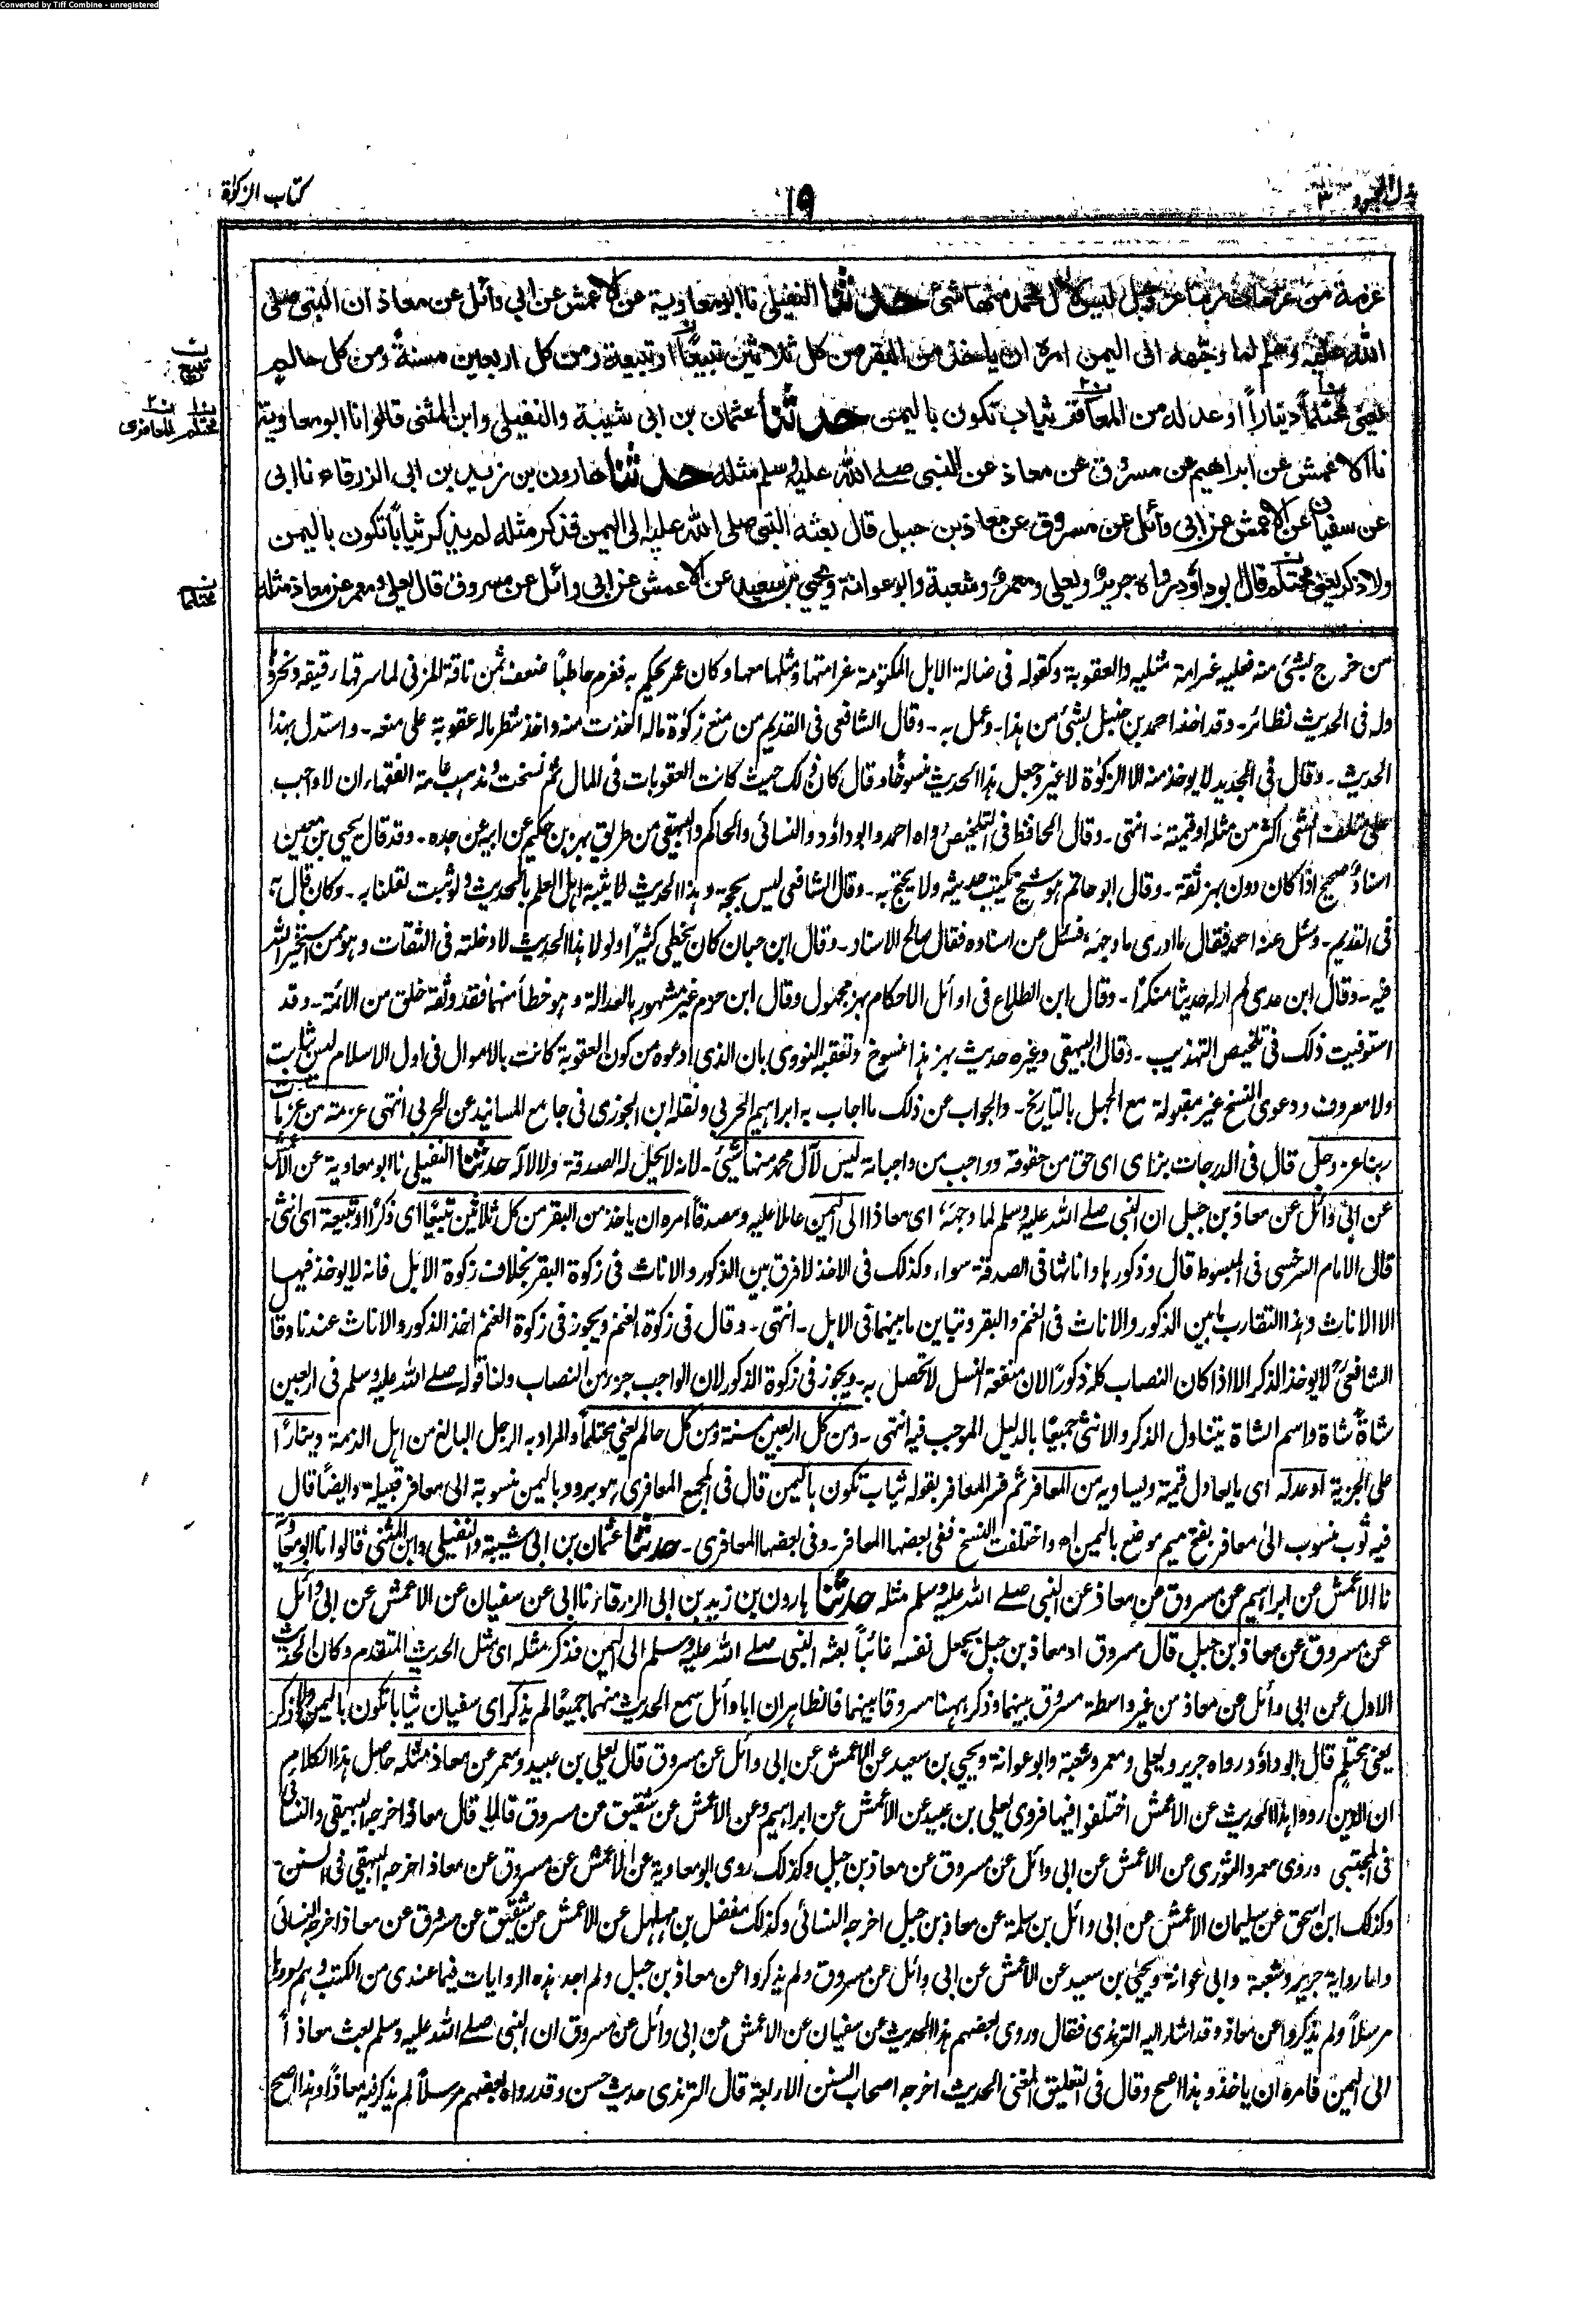 Converted by Tiff Combine - unregistered
بذل المجهود ٣
١٩
كتاب الزكوٰة
عزمة من عزمات ربنا عز وجل ليس لآل محمد منها شئ حدثنا النفيلى نا ابو معاوية عن الاعمش عن ابى وائل عن معاذ ان النبى صلى
الله عليه وسلم لما وجهه الى اليمن امره ان ياخذ من البقر من كل ثلاثين تبيعًا او تبيعة ومن كل اربعين مسنةً ومن كل حالم
يعنى محتلمًا دينارًا او عدله من المعافر ثياب تكون باليمن حدثنا عثمان بن ابى شيبة والنفيلى وابن المثنى قالوا نا ابو معاوية
نا الاعمش عن ابراهيم عن مسروق عن معاذ عن النبى صلے الله عليه وسلم مثله حدثنا هارون بن زيد بن ابى الزرقاء نا ابى
عن سفيان عن الاعمش عن ابى وائل عن مسروق عن معاذ بن جبل قال بعثه النبى صلى الله عليه الى اليمن فذكر مثله لم يذكر ثيابًا تكون باليمن
ولا ذكر يعنى محتلم قال ابو داؤد رواه جرير ويعلى ومعمر وشعبة وابو عوانة ويحيى بن سعيد عن الاعمش عن ابى وائل عن مسروق قال يعلى ومعمر عن معاذ مثله
تبيع
محتلم المعافرى
محتلما
من خرج بشئ منه فعليه غرامة مثليه والعقوبة وكقوله فى ضالة الابل المكتومة غرامتها ومثلها معها وكان عمر يحكم به فغرم حاطبًا ضعف ثمن ناقة المزنى لما سرقها رقيقه ونحروها
وله فى الحديث نظائر۔ وقد اخذ احمد بن حنبل بشئ من هذا۔ وعمل به۔ وقال الشافعى فى القديم من منع زكوٰة ماله اخذت منه واخذ شطر ماله عقوبة على منعه۔ واستدل بهذا
الحديث۔ وقال فى الجديد لا يوخذ منه الا الزكوٰة لا غير وجعل هذا الحديث منسوخًا وقال كان ذلك حيث كانت العقوبات فى المال ثم نسخت ومذهب عامة الفقهاء ان لا واجب
على متلف الشئ اكثر من مثله او قيمته۔ انتهى۔ وقال الحافظ فى التلخيص رواه احمد وابو داؤد والنسائى والحاكم والبيهقى من طريق بهز بن حكيم عن ابيه عن جده۔ وقد قال يحيى بن معين
اسناده صحيح اذا كان دون بهز ثقة۔ وقال ابو حاتم هو شيخ يكتب حديثه ولا يحتج به۔ وقال الشافعى ليس بحجة وهذا الحديث لا يثبته اهل العلم بالحديث ولو ثبت لقلنا به۔ وكان قال به
فى القديم۔ وسئل عنه احمد فقال ما ادرى ما وجهه فسئل عن اسناده فقال صالح الاسناد۔ وقال ابن حبان كان يخطى كثيرًا ولولا هذا الحديث لادخلته فى الثقات وهو ممن استخير الله
فيه۔ وقال ابن عدى لم ار له حديثا منكرًا۔ وقال ابن الطلاع فى اوائل الاحكام بهز مجهول وقال ابن حزم غير مشهور بالعدالة وهو خطأ منهما فقد وثقه خلق من الائمة۔ وقد
استوفيت ذلك فى تلخيص التهذيب۔ وقال البيهقى وغيره حديث بهز هذا منسوخ وتعقبه النووى بان الذى ادعوه من كون العقوبة كانت بالاموال فى اول الاسلام ليس بثابت
ولا معروف ودعوى النسخ غير مقبولة مع الجهل بالتاريخ۔ والجواب عن ذلك ما اجاب به ابراهيم الحربى ونقله ابن الجوزى فى جامع المسانيد عن الحربى انتهى عزمة من عزمات
ربنا عز وجل قال فى الدرجات بزاى اى حق من حقوقه وواجب من واجباته ليس لآل محمد منها شئ۔ لانه لا يحل له الصدقة ولا لآله حدثنا النفيلى نا ابو معاوية عن الاعمش
عن ابى وائل عن معاذ بن جبل ان النبى صلے الله عليه وسلم لما وجهه اى معاذا الى اليمن عاملا عليه ومصدقا امره ان ياخذ من البقر من كل ثلاثين تبيعًا اى ذكرًا او تبيعة اى انثى
قال الامام السرخسى فى المبسوط قال وذكورها واناثها فى الصدقة سواء وكذلك فى الاخذ لا فرق بين الذكور والاناث فى زكوة البقر بخلاف زكوة الابل فانه لا يوخذ فيها
الا الاناث وهذا التقارب ما بين الذكور والاناث فى الغنم والبقر وتباين ما بينهما فى الابل۔ انتهى۔ وقال فى زكوة الغنم ويجوز فى زكوة الغنم اخذ الذكور والاناث عندنا وقال
الشافعىؒ لا يوخذ الذكر الا اذا كان النصاب كله ذكورًا لان منفعة النسل لا تحصل به۔ ويجوز فى زكوة الذكور لان الواجب جزء من النصاب ولنا قوله صلے الله عليه وسلم فى اربعين
شاة شاة واسم الشاة يتناول الذكر والانثى جميعًا بالدليل الموجب فيه انتهى۔ ومن كل اربعين مسنة ومن كل حالم يعنى محتلما والمراد به الرجل البالغ من اهل الذمة دينارًا
على الجزية او عدله اى ما يعادل قيمته ويساويه من المعافر ثم فسر المعافر بقوله ثياب تكون باليمن قال فى المجمع المعافرى هو برود باليمن منسوبة الى معافر قبيلة وايضًا قال
فيه ثوب منسوب الىٰ معافر بفتح ميم موضع باليمن اه واختلفت النسخ ففى بعضها المعافر۔ وفى بعضها المعافرى۔ حدثنا عثمان بن ابى شيبة والنفيلى وابن المثنى قالوا نا ابو معاوية
نا الاعمش عن ابراهيم عن مسروق عن معاذ عن النبى صلے الله عليه وسلم مثله حدثنا هارون بن زيد بن ابى الزرقاء نا ابى عن سفيان عن الاعمش عن ابى وائل
عن مسروق عن معاذ بن جبل قال مسروق او معاذ بن جبل بجعل نفسه غائباً بعثه النبى صلے الله عليه وسلم الى اليمن فذكر مثله اى مثل الحديث المتقدم وكان الحديث
الاول عن ابى وائل عن معاذ من غير واسطة مسروق بينهما وذكر ههنا مسروقا بينهما فالظاهر ان ابا وائل سمع الحديث منهما جميعًا لم يذكر اى سفيان ثيابا تكون باليمن ولا ذكر
يعنى محتلم قال ابو داؤد رواه جرير ويعلى ومعمر وشعبة وابو عوانة ويحيى بن سعيد عن الاعمش عن ابى وائل عن مسروق قال يعلى بن عبيد ومعمر عن معاذ مثله حاصل هذا الكلام
ان الذين رووا هذا الحديث عن الاعمش اختلفوا فيها فروى يعلى بن عبيد عن الاعمش عن ابراهيم وعن الاعمش عن شقيق عن مسروق قالا قال معاذ اخرجه البيهقى والنسائى
فى المجتبى وروى معمر والثورى عن الاعمش عن ابى وائل عن مسروق عن معاذ بن جبل وكذلك روى ابو معاوية عن الاعمش عن مسروق عن معاذ اخرجه البيهقى فى السنن۔
وكذلك ابن اسحق عن سليمان الاعمش عن ابى وائل بن سلمة عن معاذ بن جبل اخرجه النسائى وكذلك مفضل بن مهلهل عن الاعمش عن شقيق عن مسروق عن معاذ اخرجه النسائى
واما رواية جرير وشعبة وابى عوانة ويحيىٰ بن سعيد عن الاعمش عن ابى وائل عن مسروق ولم يذكروا عن معاذ بن جبل ولم اجد هذه الروايات فيما عندى من الكتب وهم رووها
مرسلاً ولم يذكروا عن معاذ وقد اشار اليه الترمذى فقال وروى بعضهم هذا الحديث عن سفيان عن الاعمش عن ابى وائل عن مسروق ان النبى صلے الله عليه وسلم بعث معاذاً
الى اليمن فامره ان ياخذ وهذا اصح وقال فى التعليق المغنى الحديث اخرجه اصحاب السنن الاربعة قال الترمذى حديث حسن وقد رواه بعضهم مرسلاً لم يذكر فيه معاذاً وهذا اصح